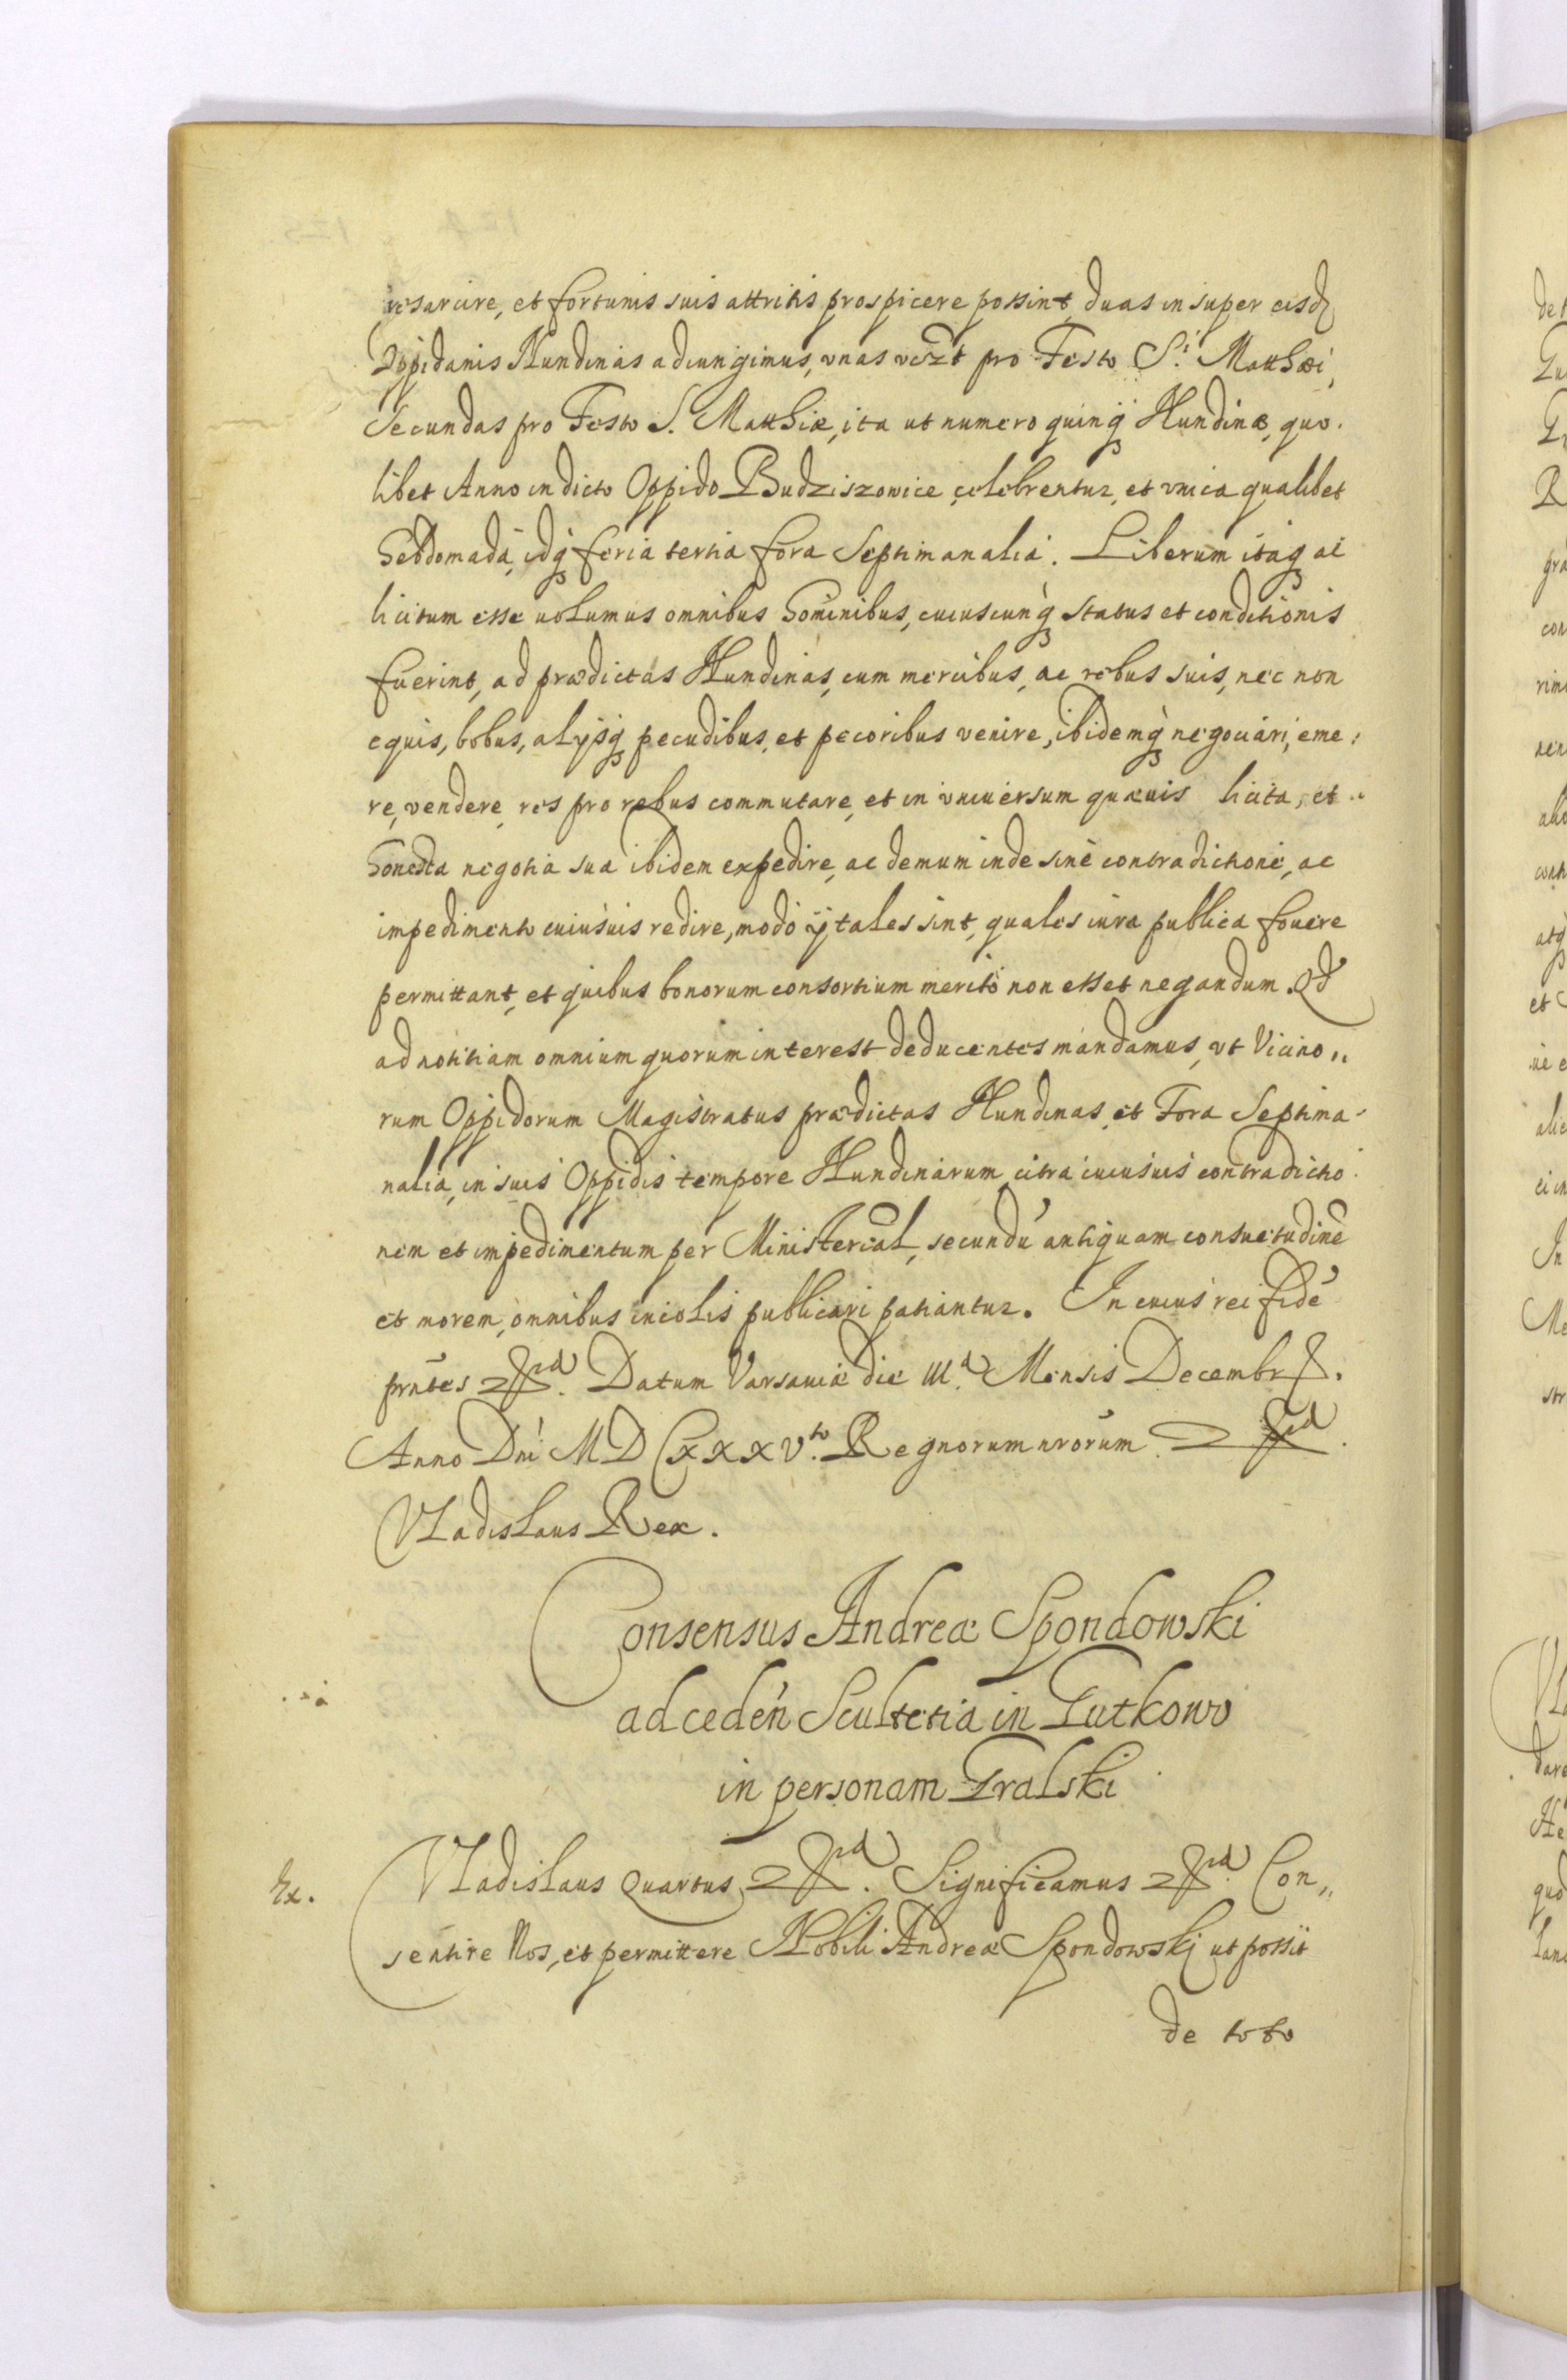 resarcire, et fortunis suis attritis prospicere possint, duas insuper eisdꝫ
Oppidanis Nundinas adiungimus, vnas vcꝫt pro Festo S.ⁱ Matthæi,
Secundas pro Festo S. Matthiæ, ita ut numero quinqꝫ Nundinæ, quo-
libet Anno in dicto Oppido Budziszowice celebrentur, et vnica qualibet
hebdomada, idqꝫ feria tertia fora Septimanalia. Liberum itaqꝫ ac
licitum esse uolumus omnibus hominibus, cuiuscunqꝫ status et conditionis
fuerint, ad prædictas Nundinas, cum mercibus, ac rebus suis, nec non
equis, bobus, alÿsqꝫ pecudibus, et pecoribus venire, ibidemqꝫ negociari, eme:
re, vendere, res pro rebus commutare, et in vniuersum quæuis licita, et
honesta negotia sua ibidem expedire, ac demum inde sine contradictione, ac
impedimento cuiusuis redire, modo ÿ tales sint, quales iura publica fouere
permittant, et quibus bonorum consortium merito non esset negandum. Qd
ad notitiam omnium quorum interest deducentes mandamus, vt Vicino„
rum Oppidorum Magistratus prædictas Nundinas, et Fora Septima-
nalia, in suis Oppidis tempore Nundinarum citra cuiusuis contradictio
nem et impedimentum per Ministerial, secundū antiquam consuetudinē
et morem, omnibus incolis publicari patiantur. In cuius rei fidē
pr̄ntes etc. Datum Varsauiæ die III.ᵃ Mensis Decembr.
Anno Dni MDCXXXV.ᵗᵒ Regnorum nr̄orum etc.
Vladislaus Rex.
Consensus Andreæ Spondowski
ad ceden̄ Scultetia in Gutkowo
in personam Gralski
Ex. Vladislaus Quartus etc. Significamus etc. Con„
sentire Nos, et permittere Nobili Andreæ Spondowski ut possit
de toto